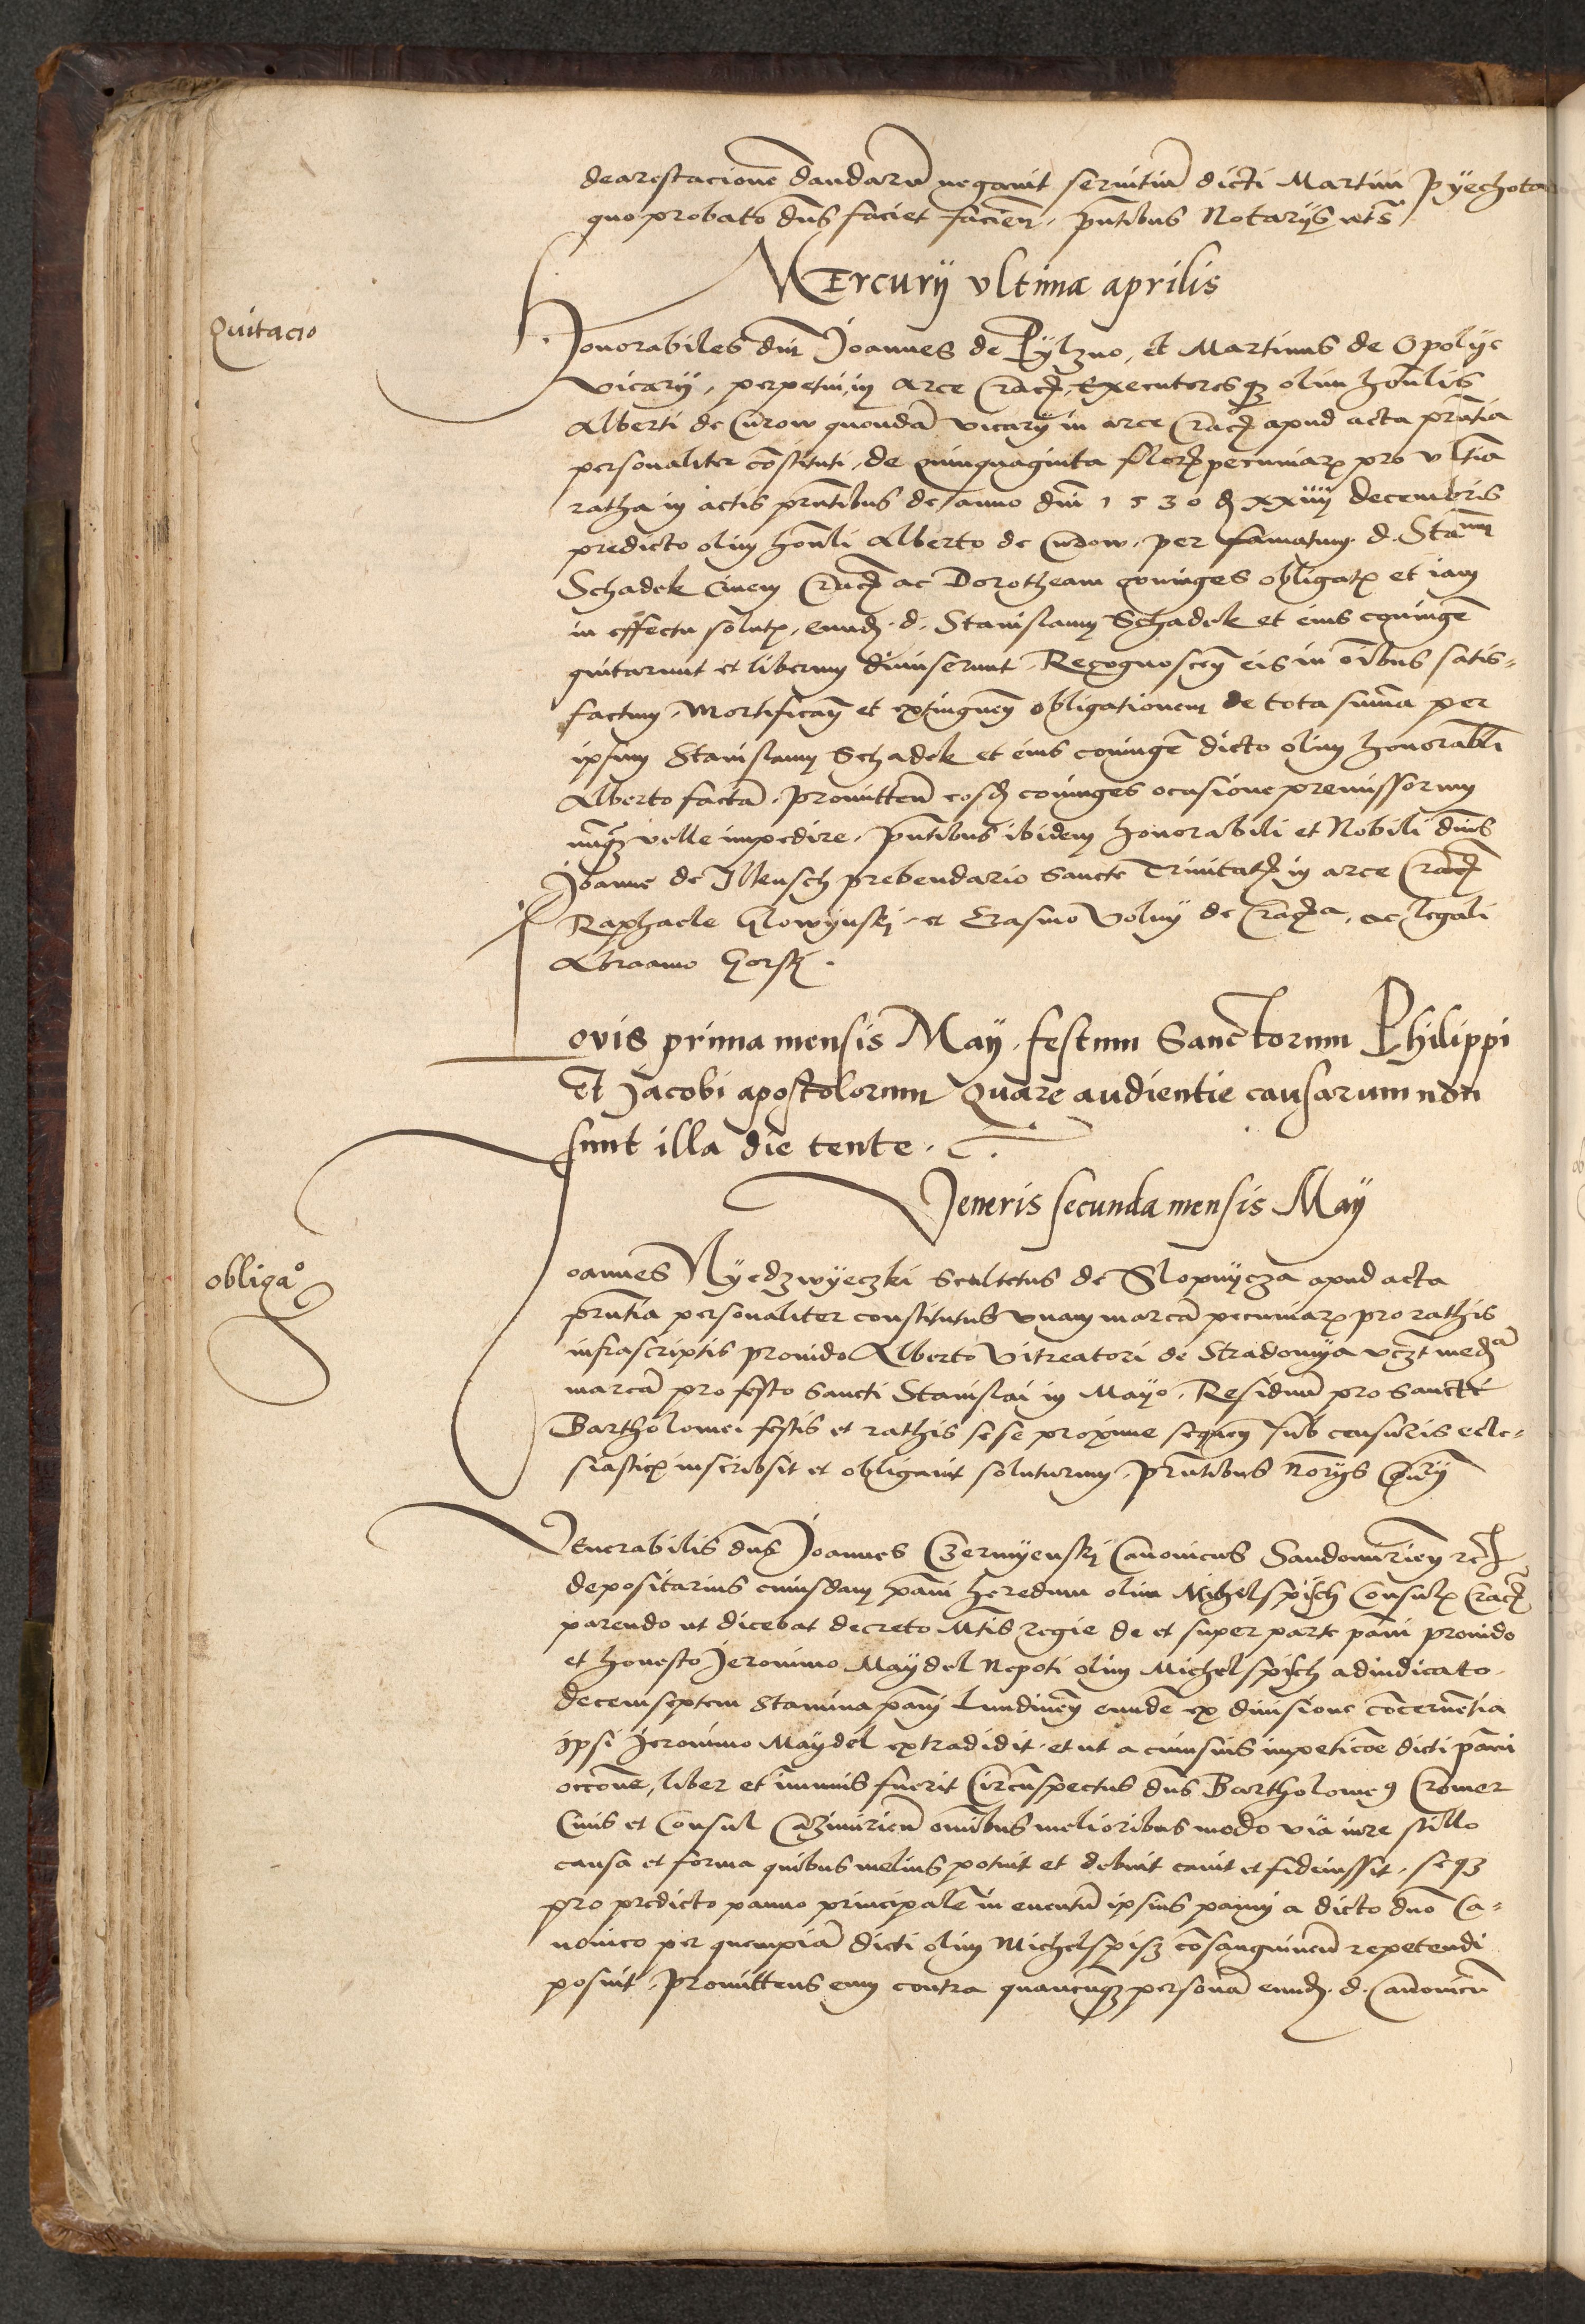 dearestacione dandaru negavit servitiu dicti Martini Pyechota
quo probato dns faciet facien. pntibus Notarys
MErcurij ultima aprilis
Quitacio
Honorabiles dni Joannes de Pylzno, et Martinus de Opolye
vicarij, perpetui, in arce Crac. Executoresq3 olim honlis
Alberti de Curow quonda vicarij in arce Crac. apud acta pntia
personaliter constituti, de quinquaginta flor. pecuniar. pro ultia
ratha in actis pntibus de anno dni 1530 d. xxiiij decembris
predicto olim honli Alberto de Curow. per famatum d. Stanm
Schadek Civem Crac. ac Dorotheam coniuges obligat. et iam
in effectu solut. eund. d. Stanislaum Schadek et eius coniuge
quitarunt et liberum dimiserunt. Recognoscen eis in oibus satis-
factum. Mortifican et extinguen obligationem de tota suma per
ipsum Stanislaum Schadek et eius coniuge dicto olim honorabli
Alberto facta. Promitten eosd. coniuges occasione premissorum
nuq3 velle impedire. pntibus ibidem honorabili et Nobili dnis
Joanne de Ilkusch prebendario Sancte Trinitat. in arce Crac.
Raphaele Glowynski et Erasmo Volny de Crac.a, ac legali
Abraamo Gorski.
Jovis prima mensis May. festum Sanctorum Philippi
Et Jacobi apostolorum Quare audientie causarum non
sunt illa die tente.
Veneris secunda mensis Maij
obligao
Joannes Nyedzwyeczki Scultetus de Slopnycza apud acta
pntia personaliter constitutus unam marca pecuniar. pro rathis
infrascriptis provido Alberto Vitreatori de Stradomya vczt media
marca pro festo Sancti Stanislai in Mayo. Residuu pro Sancti
Bartholomei festis et rathis sese proxime sequen sub censuris ecle-
siastic. inscribsit et obligavit soluturum. Pntibus Norys
VEnerabilis dns Joannes Czermyenski Canonicus Sandomirien
depositarius cuiusdam pani heredum olim Michelspisch Consul. Crac.
parendo ut dicebat decreto Mtis regie de et super parte pani provido
et honesto Jeronimo Maydel Nepoti olim Michelspisch adiudicato.
decemseptem Stamina pani Lundinen eunde ex divisione concernetia
ipsi Jeronimo Maydel extradidit. et ut a cuiusvis impeticoe dicti pani
occone, liber et imunis fuerit Circunspectus dns Bartholomeg Cromer
Civis et Consul Cazimirien omibus melioribus modo via iure stillo
causa et forma quibus melius potuit et debuit cavit et fideiussit. seq3
pro predicto panno principale in eventu ipsius panni a dicto dno Ca-
nonico per quempia dicti olim Michelspisz consanguineu repetendi
posuit. Promittens eum contra quamcunq3 persona eund. d. Canonicu